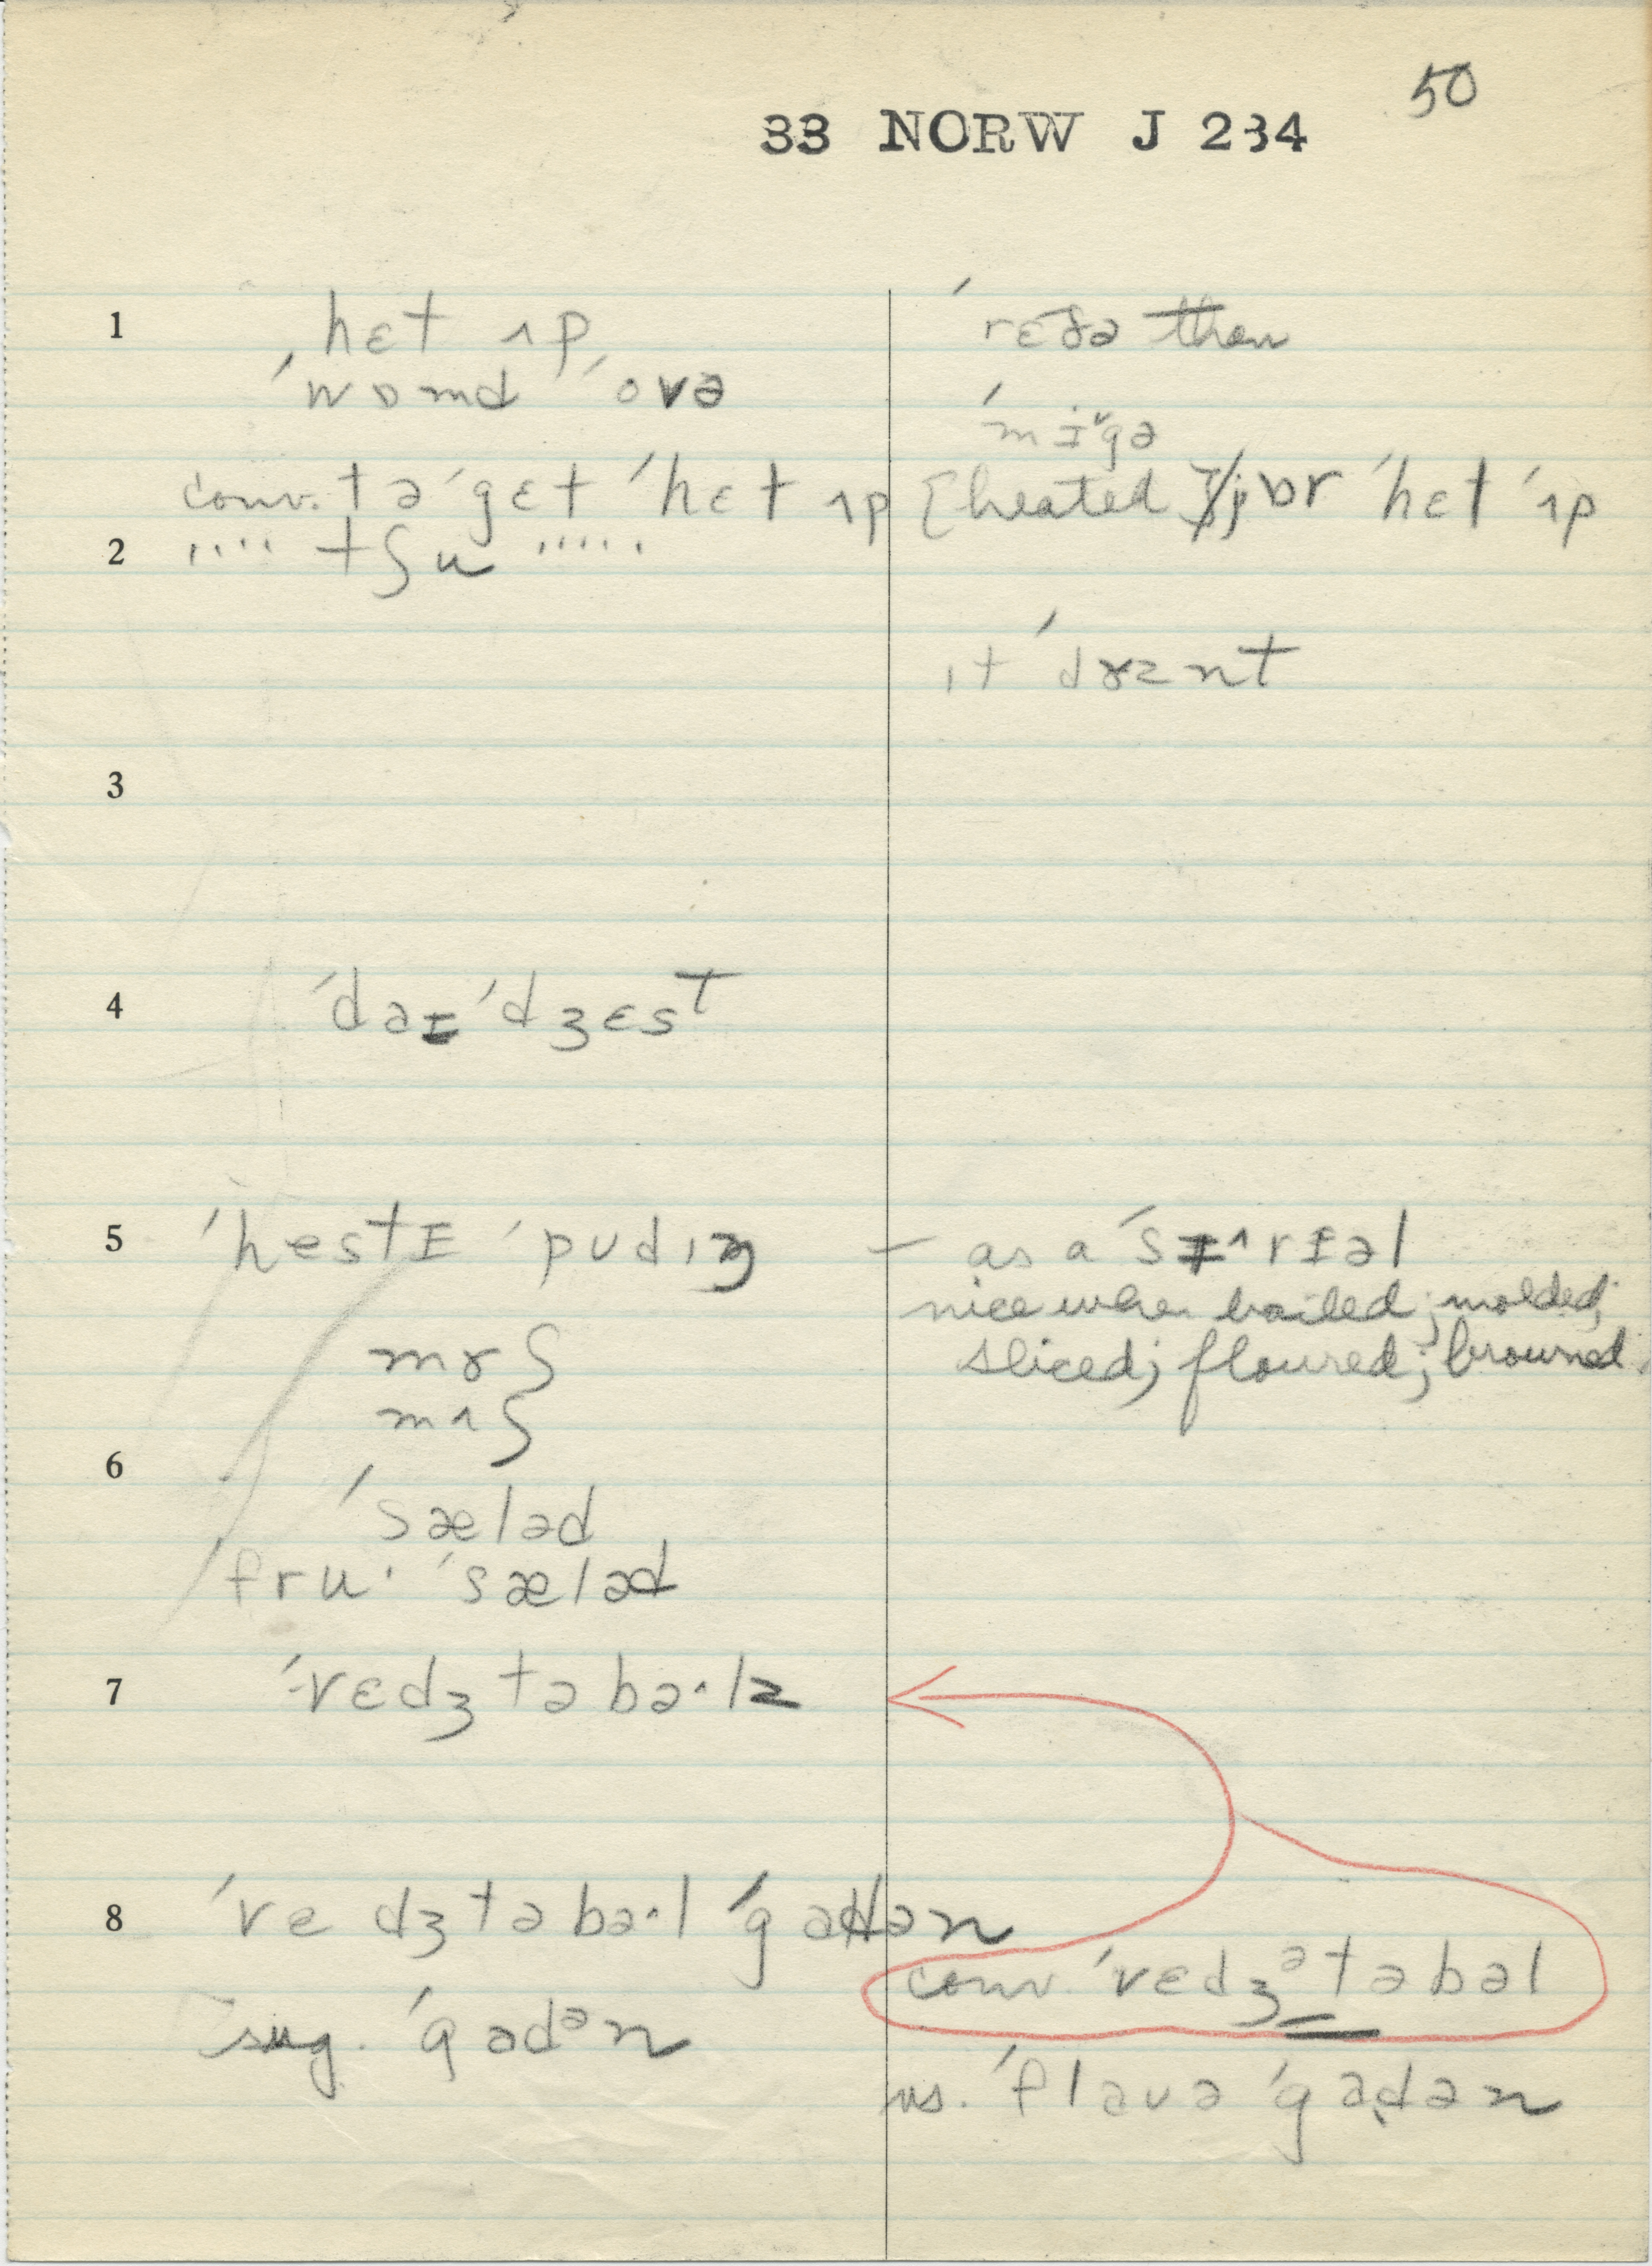 50
33 NORW J 234
1
ˈhɛt ʌp
ˈwɒmd ˈovə
ˈrɛðə than
2
conv. tə ˈgɛt ˈhɛt ʌp [heated
ˈhɛt ˈʌp
'''' tʃu '''''
ɪt ˈdɤznt
3
4
ˈdaɪˈdʒɛst
5
ˈhestɪ ˈpudɪŋ
— as a
nice when boiled; molded;
sliced; floured; browned.
mɤʃ
mʌʃ
6
ˈsæləd
fru· ˈsæləd
7
ˈvɛdʒtəbə·lz
8
ˈvedʒtəbə·l ˈgadən
conv. ˈvɛdʒᵊtəbəl
sug. ˈgadᵊn
vs. ˈflauə ˈgadən